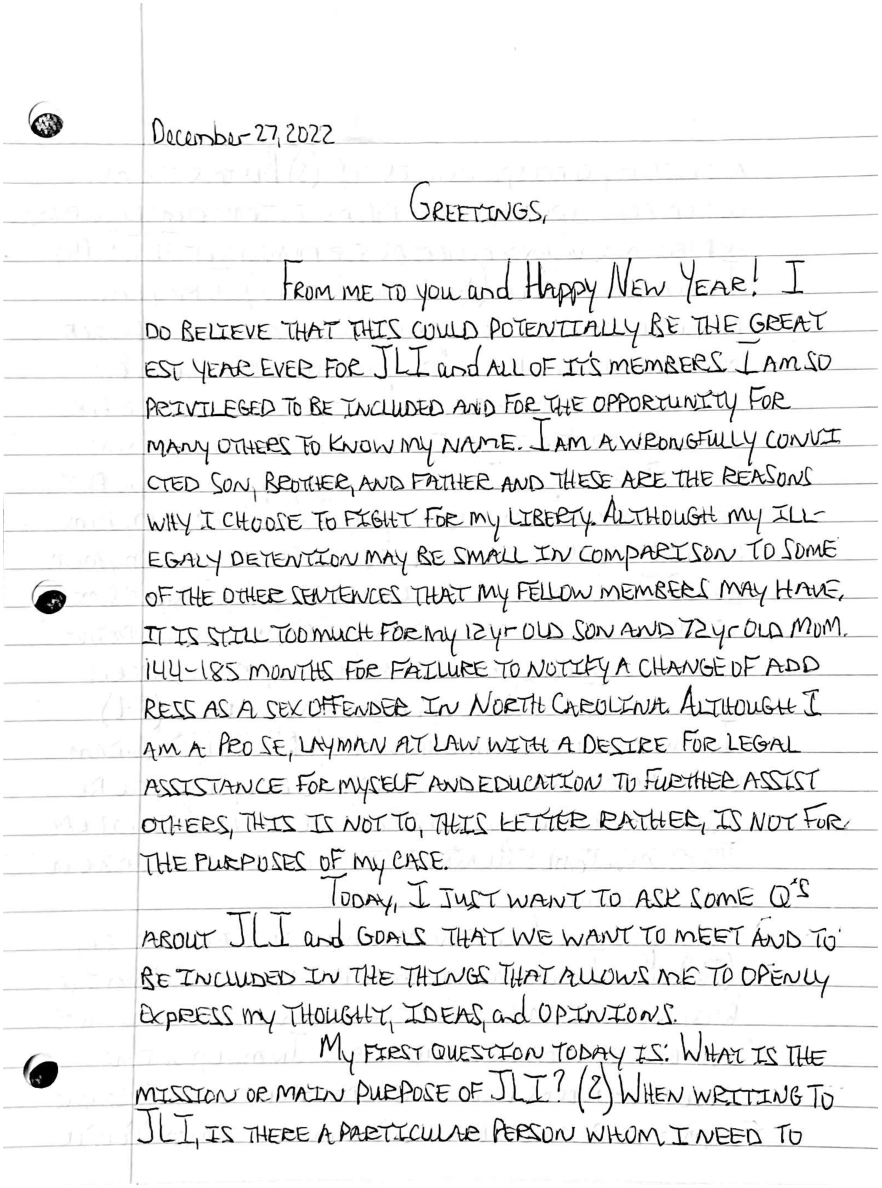 December 27, 2022
GREETINGS,
FROM ME TO you and HAppy NEW YEAR! I
DO BELIEVE THAT THIS COULD POTENTIALLY BE THE GREAT
EST YEAR EVER FOR JLI and ALL OF IT'S MEMBERS. I AM SO
PRIVILEGED TO BE INCLUDED AND FOR THE OPPORTUNITY FOR
MANY OTHERS TO KNOW MY NAME. I AM A WRONGFULLY CONVI
CTED SON, BROTHER, AND FATHER AND THESE ARE THE REASONS
WHY I CHOOSE TO FIGHT FOR MY LIBERTY. ALTHOUGH MY ILL-
EGALY DETENTION MAY BE SMALL IN COMPARISON TO SOME
OF THE OTHER SENTENCES THAT MY FELLOW MEMBERS MAY HAVE,
IT IS STILL TOO MUCH FOR MY 12yr OLD SON AND 72yr OLD MOM.
144-185 MONTHS FOR FAILURE TO NOTIFY A CHANGE OF ADD
RESS AS A SEX OFFENDER IN NORTH CAROLINA. ALTHOUGH I
AM A PRO SE, LAYMAN AT LAW WITH A DESIRE FOR LEGAL
ASSISTANCE FOR MYSELF AND EDUCATION TO FURTHER ASSIST
OTHERS, THIS IS NOT TO, THIS LETTER RATHER, IS NOT FOR
THE PURPOSES OF MY CASE.
TODAY, I JUST WANT TO ASK SOME Q'S
ABOUT JLI and GOALS THAT WE WANT TO MEET AND TO
BE INCLUDED IN THE THINGS THAT ALLOWS ME TO OPENLY
EXPRESS MY THOUGHT, IDEAS, and OPINIONS.
MY FIRST QUESTION TODAY IS: WHAT IS THE
MISSION OR MAIN PURPOSE OF JLI? (2) WHEN WRITING TO
JLI, IS THERE A PARTICULAR PERSON WHOM I NEED TO